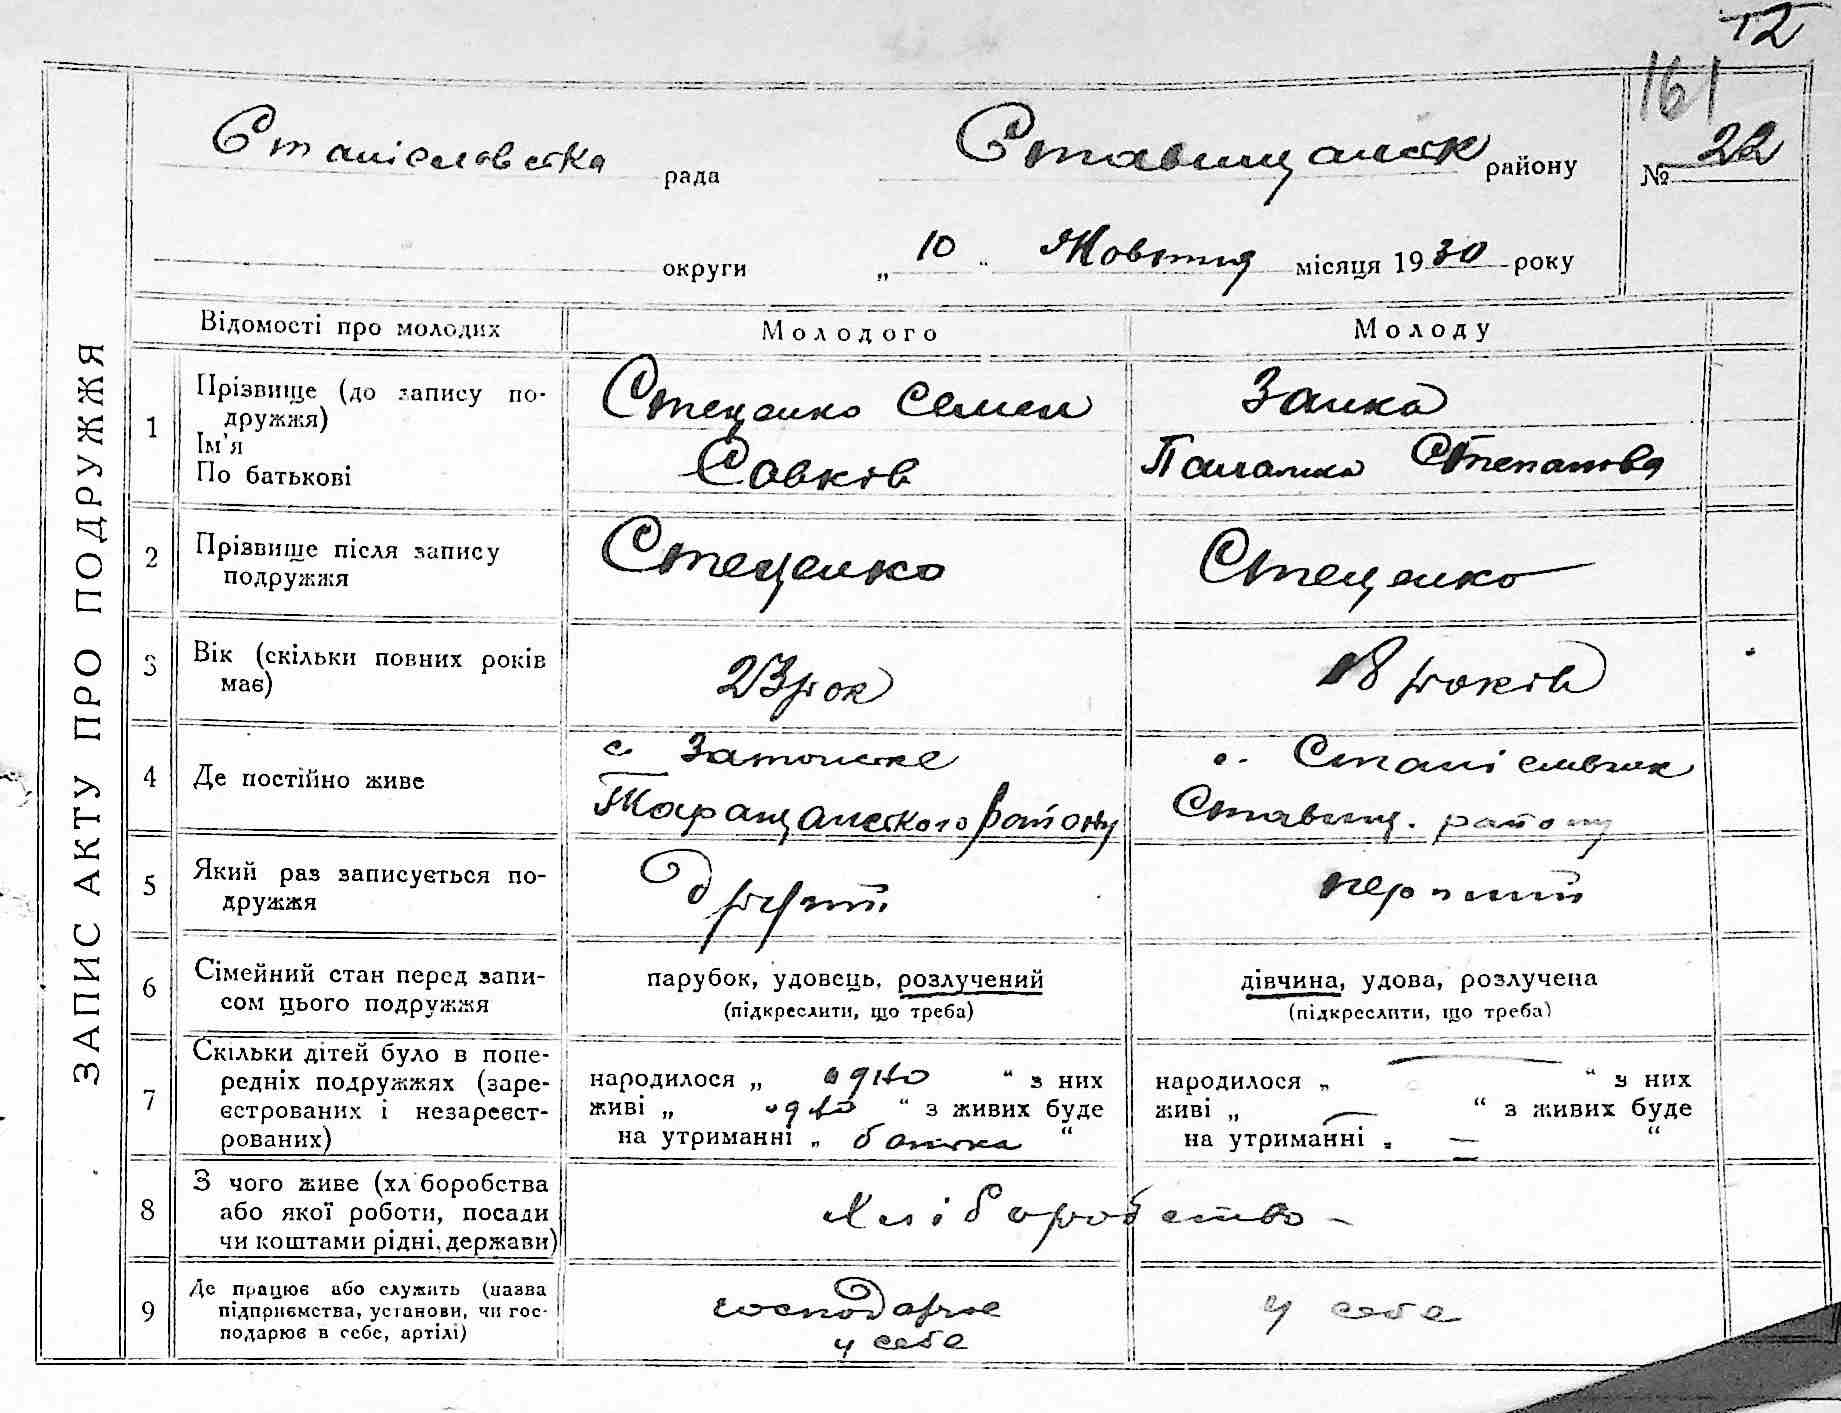 12
161
Станіславська рада Ставищанськ району № 22
округи „ 10 “ Жовтня місяця 1930 року
ЗАПИС АКТУ ПРО ПОДРУЖЖЯ
Відомості про молодих Молодого Молоду
1 Прізвище (до запису подружжя) Стеценко Семен Заика
Ім'я
По батькові Савків Палажка Степанова
2 Прізвище після запису Стеценко Стеценко
подружжя
3 Вік (скільки повних років 23 рок 18 років
має)
4 Де постійно живе с Затонське с. Станіславчик
Таращанського району Ставищ. району
5 Який раз записується по- другий перший
дружжя
6 Сімейний стан перед запи- парубок, удовець, розлучений дівчина, удова, розлучена
сом цього подружжя (підкреслити, що треба) (підкреслити, що треба)
7 Скільки дітей було в попе-
редніх подружжях (заре- народилося „ одно “ з них народилося „ — “ з них
єстрованих і незареєст- живі „ одно “ з живих буде живі „ — “ з живих буде
рованих) на утриманні „ батька “ на утриманні „ — “
8 З чого живе (хліборобства
або якої роботи, посади Хліборобство -
чи коштами рідні, держави)
9 Де працює або служить (назва господарює у себе
підприємства, установи, чи гос- у себе
подарює в себе, артілі)